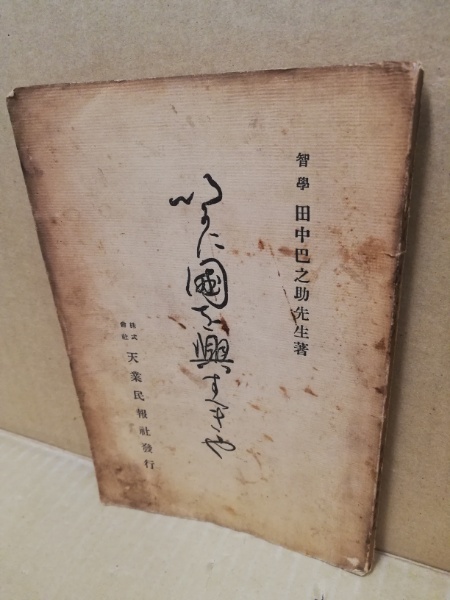 智學 田中巴之助先生著
いかに國を興すべきや
株式會社 天業民報社發行